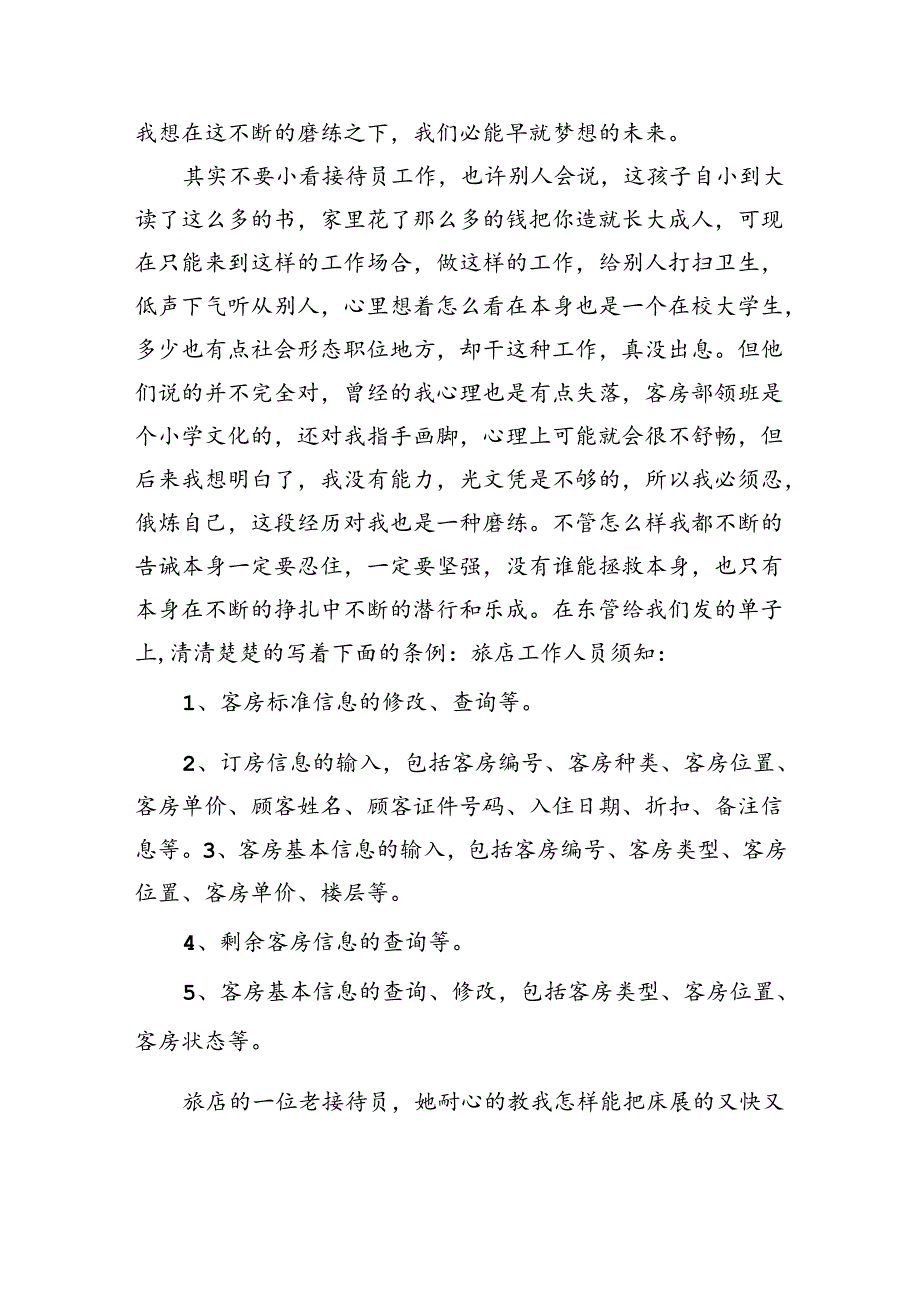 我想在这不断的磨练之下，我们必能早就梦想的未来。
其实不要小看接待员工作，也许别人会说，这孩子自小到大
读了这么多的书，家里花了那么多的钱把你造就长大成人，可现
在只能来到这样的工作场合，做这样的工作，给别人打扫卫生，
低声下气听从别人，心里想着怎么看在本身也是一个在校大学生，
多少也有点社会形态职位地方，却干这种工作，真没出息。但他
们说的并不完全对，曾经的我心理也是有点失落，客房部领班是
个小学文化的，还对我指手画脚，心理上可能就会很不舒畅，但
后来我想明白了，我没有能力，光文凭是不够的，所以我必须忍，
俄炼自己，这段经历对我也是一种磨练。不管怎么样我都不断的
告诫本身一定要忍住，一定要坚强，没有谁能拯救本身，也只有
本身在不断的挣扎中不断的潜行和乐成。在东管给我们发的单子
上,清清楚楚的写着下面的条例：旅店工作人员须知：
1、客房标准信息的修改、查询等。
2、订房信息的输入，包括客房编号、客房种类、客房位置、
客房单价、顾客姓名、顾客证件号码、入住日期、折扣、备注信
息等。3、客房基本信息的输入，包括客房编号、客房类型、客房
位置、客房单价、楼层等。
4、剩余客房信息的查询等。
5、客房基本信息的查询、修改，包括客房类型、客房位置、
客房状态等。
旅店的一位老接待员，她耐心的教我怎样能把床展的又快又